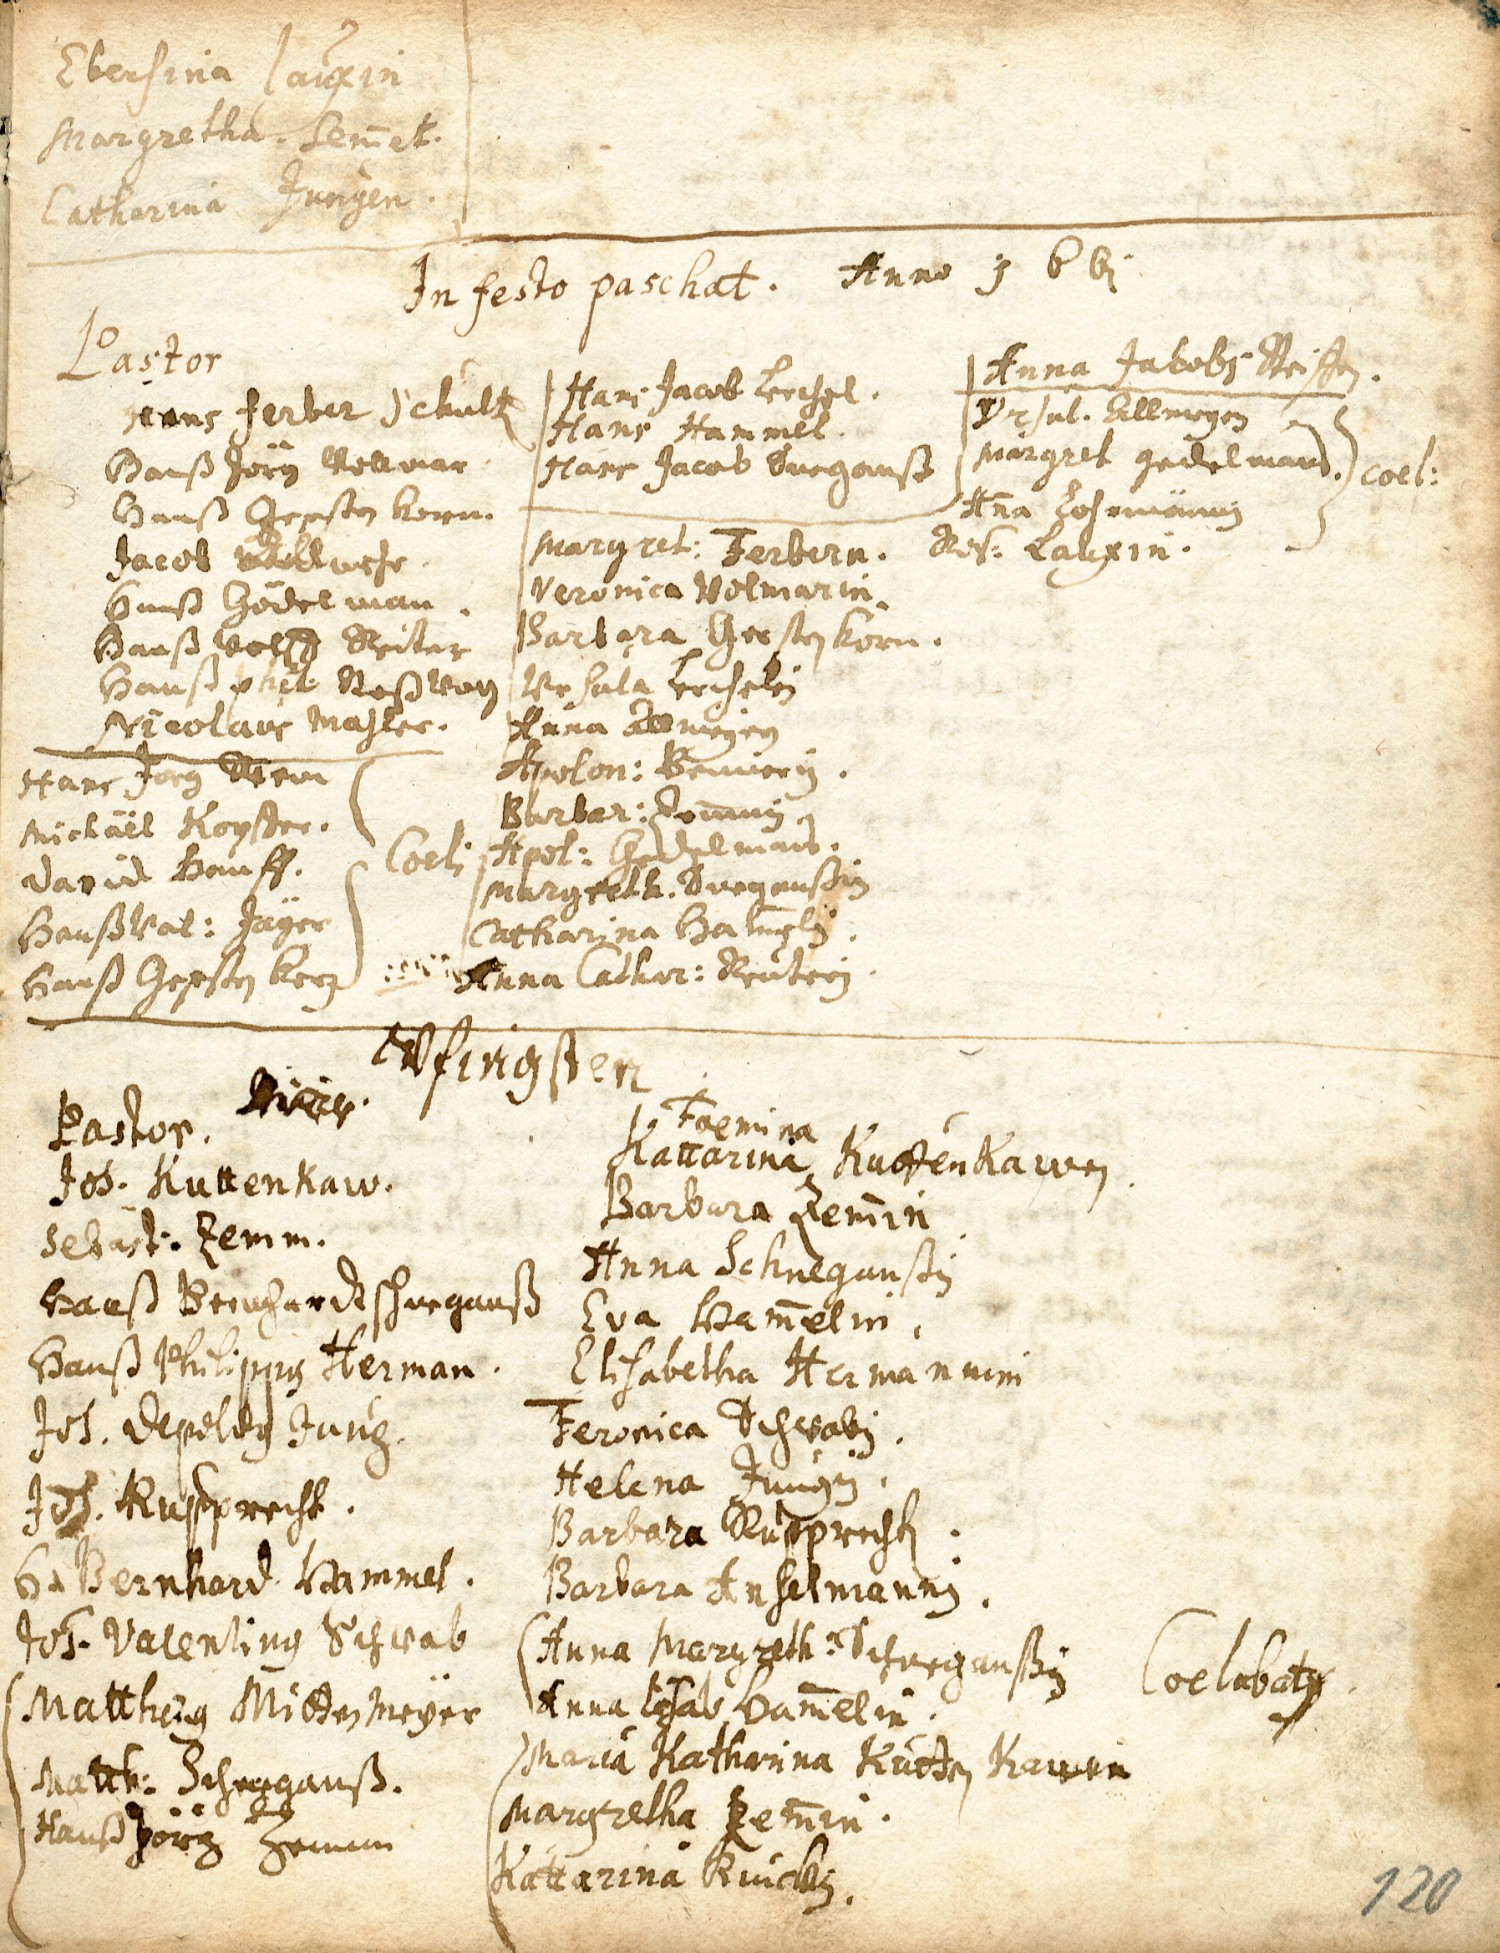 Ebersina Lauxin
Margretha. Zem̄et.
Catharina Jungen.
In festo paschat. Anno
Pastor
Hans Ferber Schultz
Hanß Jörg Vollmar
Hanß Gersten korn.
Jacob
Hanß Gödelman.
Hanß Volff Reiter
Hanß phil:
Nicolaus Mahler.
Hans Jorg
Michäel Koyster.
David Hauff.
Hanß Val: Jäger
Hanß Gersten kern
Coeli
Hans Jacob Lerchel.
Hans Hammel.
Hans Jacob Snegansß
Margret: Ferbern.
Veronica Volmarin.
Barbara Gersten korn.
Ursula Lerchelin
Anna
Apolon:
Barbar: Zem̄in.
Apol: Gedelman.
Margreth. Snegansßin
Catharina Ham̄elin.
Anna Cathar: Reuterin.
Anna Jakobs
Ursul. Ellmegen
Margret gedelmans.
Aña
Ros: Lauxin.
coel:
Pfingsten
Pastor.
Joh. Kuttenkaw.
Sebast: Zemm.
Hanß Bernhardt Schneganß
Hanß Philipps Herman.
Joh. Jung.
Joh. Rupprecht.
Hs Bernhard Hammel.
Joh. Valentinus Schwab
Mattheis Mitten Meÿer
Matth: Schneganß.
Hanß Jörg Zemm
Foemina
Kattarina Kuttenkawen
Barbara Zem̄in
Anna Schneganßin
Eva Ham̄elin.
Elisabetha Hermannin
Feronica Schwabin.
Helena Jungin.
Barbara Rupprecht.
Barbara Anselmannin.
Anna Margreth: Schneganßin
Anna Elisab Ham̄elin.
Maria Katharina Kutten Kawen
Margretha Zem̄in.
Kattarina
Coelebat
120